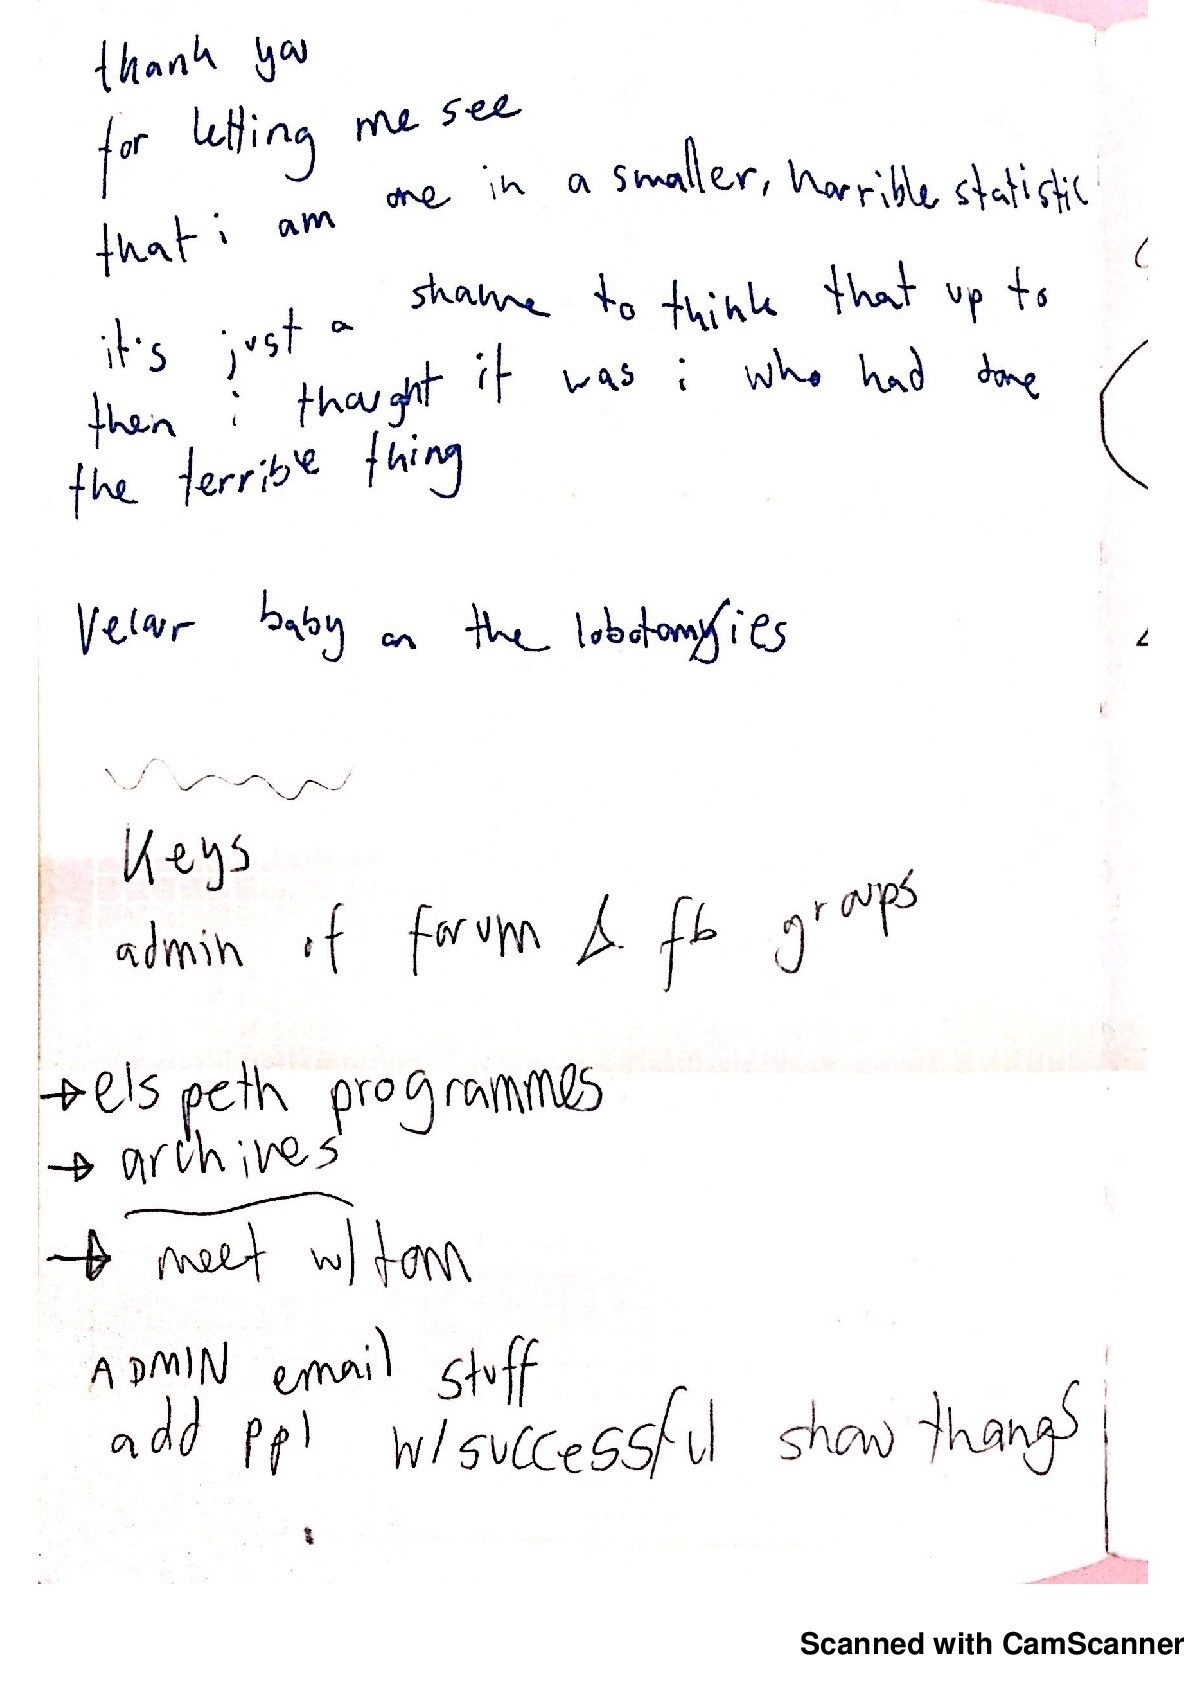 thank you
for letting me see
that i am one in a smaller, horrible statistic
it's just a shame to think that up to
then i thought it was i who had done
the terrible thing
Velour baby on the lobotomies
Keys
admin of forum & fb groups
→ elspeth programmes
→ archives
→ meet w/ tom
ADMIN email stuff
add ppl w/ successful show thangs
Scanned with CamScanner